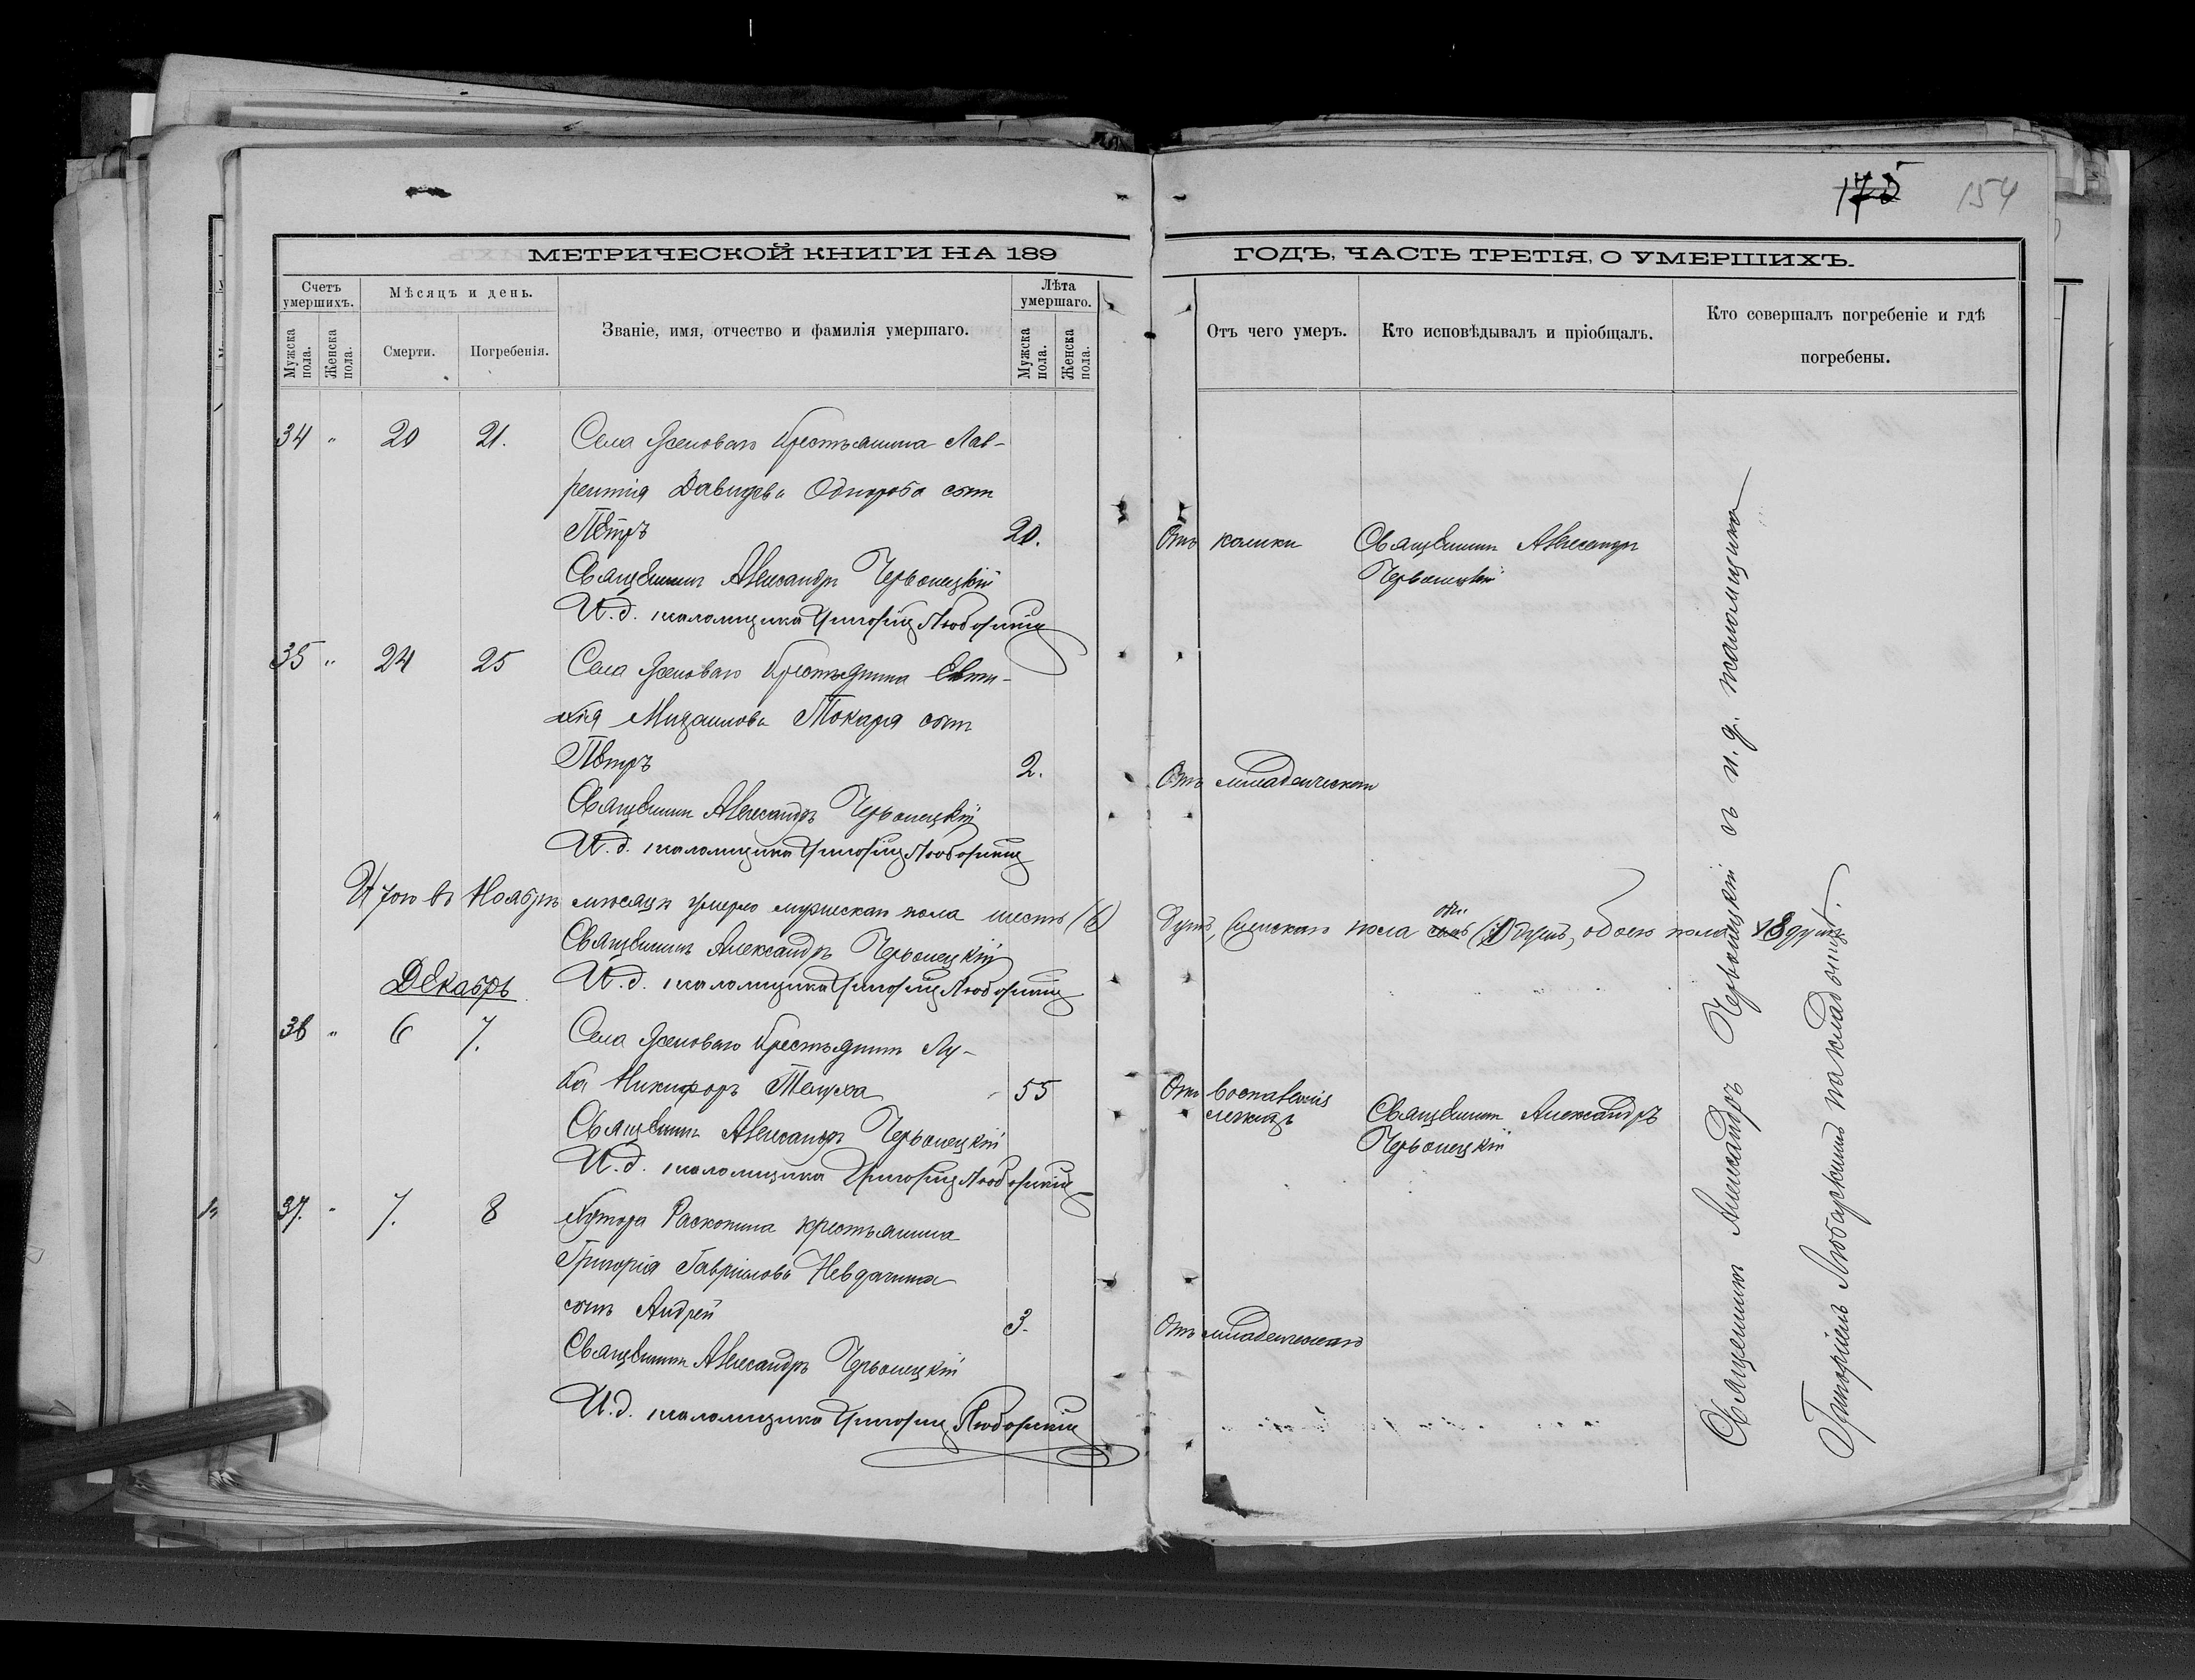 175 154
МЕТРИЧЕСКОЙ КНИГИ НА 189
ГОДЪ, ЧАСТЬ ТРЕТІЯ, О УМЕРШИХЪ.
Счетъ умершихъ.
Мѣсяцъ и день.
Званіе, имя, отчество и фамилія умершаго.
Лѣта умершаго.
Мужска пола.
Женска пола.
Смерти.
Погребенія.
Мужска пола.
Женска пола.
Отъ чего умеръ.
Кто исповѣдывалъ и пріобщалъ.
Кто совершалъ погребеніе и гдѣ
погребены.
34 " 20 21. Села крестьянина Лав-
рентія Давидова Однороба сынъ
Петръ 20. Отъ колики Священникъ Александръ
Червонецкій
Священникъ Александръ Червонецкій
И. д. псаломщика Григорій
35 " 24 25 Села крестьянина Евти-
хія Михаилова Токаря сынъ
Петръ 2. Отъ младенческой
Священникъ Александръ Червонецкій
И. д. псаломщика Григорій
Итого въ Ноябрѣ мѣсяцѣ умерло мужескаго пола шесть (6) душъ, женскаго пола душъ, обоего пола душъ
Священникъ Александръ Червонецкій
И. д. псаломщика Григорій
Декабрь
36 " 6 7. Села крестьянинъ Лу-
ка Никифоръ 55 Отъ воспаленія
легкихъ Священникъ Александръ
Червонецкій
Священникъ Александръ Червонецкій
И. д. псаломщика Григорій
37. " 7. 8 Хутора Раскопина крестьянина
Григорія Гавріилова Невдачина
сынъ Андрей 3. Отъ младенческой
Священникъ Александръ Червонецкій
И. д. псаломщика Григорій
Священникъ Александръ Червонецкій съ и. д. псаломщика
Григоріемъ Любарскимъ на кладбищѣ.